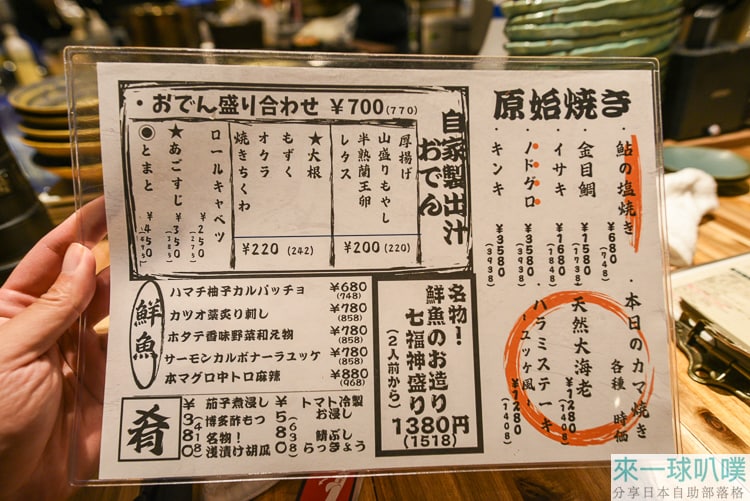 原始焼き
・鮎の塩焼き ¥680 (748)
・金目鯛 ¥1580 (1738)
・イサキ ¥1680 (1848)
・ノドグロ ¥3580 (3938)
・キンキ ¥3580 (3938)
・本日のカマ焼き 各種 時価
・天然大海老 ¥1280 (1408)
・ハラミステーキ ～ユッケ風～ ¥1280 (1408)
・おでん盛り合わせ ¥700(770)
自家製出汁
おでん
厚揚げ
山盛りもやし
半熟蘭王卵
レタス
¥200 (220)
★大根
もずく
オクラ
焼きちくわ
¥220 (242)
ロールキャベツ ¥250 (275)
★あごすじ ¥350
◉とまと ¥450
名物!
鮮魚のお造り
七福神盛り
(2人前から)
1380円
(1518)
鮮魚
ハマチ柚子カルパッチョ ¥680 (748)
カツオ藁炙り刺し ¥780 (858)
ホタテ香味野菜和え物 ¥780 (858)
サーモンカルボナーラユッケ ¥780 (858)
本マグロ中トロ麻辣 ¥880 (968)
肴
茄子煮浸し
博多酢もつ
名物!
浅漬け胡瓜
¥380 (418)
トマト冷製
お浸し
鯖ぶし
らっきょう
¥580 (638)
來一球叭噗
分享日本自助部落格